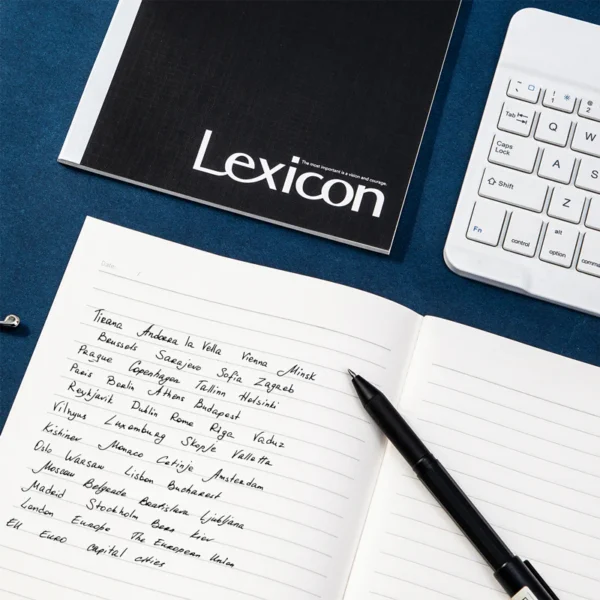 Lexicon
The most important is a vision and courage.
Tab
Caps
Lock
Shift
Fn
control
alt
option
Q
W
A
S
Z
1
2
Date:
Tirana Andorra la Vella Vienna Minsk
Brussels Sarajevo Sofia Zagreb
Prague Copenhagen Tallinn Helsinki
Paris Berlin Athens Budapest
Reykjavik Dublin Rome Riga Vaduz
Vilnyus Luxemburg Skopje Valletta
Kishinev Monaco Cetinje Amsterdam
Oslo Warsaw Lisbon Bucharest
Moscow Belgrade Bratislava Ljubljana
Madrid Stockholm Bern Kiev
London Europe The European Union
EU Euro Capital cities